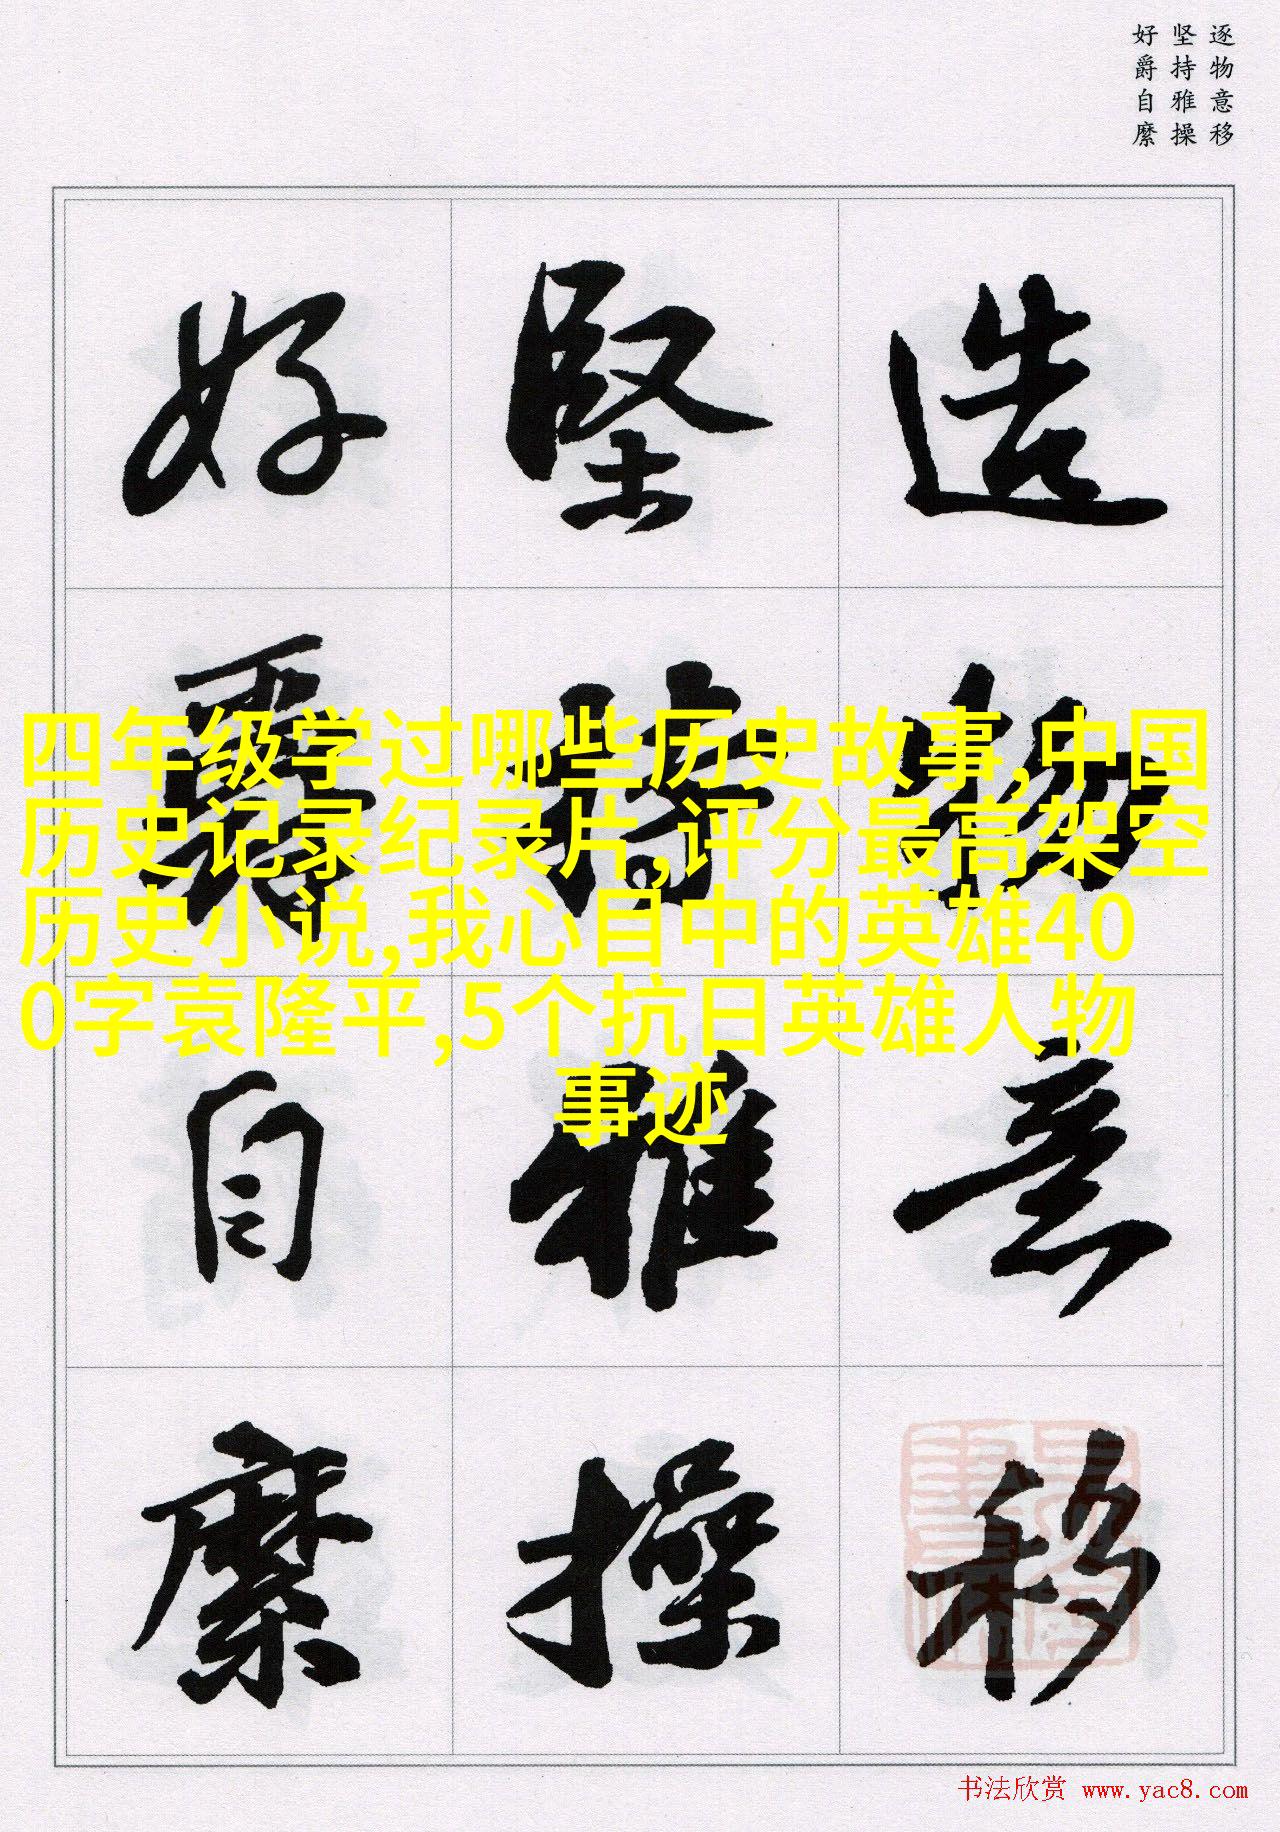 逐物意移
坚持雅操
好爵自縻
造物意移
堅持雅操
好爵自縻
四年级学过哪些历史故事,中国
历史记录纪录片,评分最高架空
历史小说,我心目中的英雄40
0字袁隆平,5个抗日英雄人物
事迹
书法欣赏 www.yac8.com